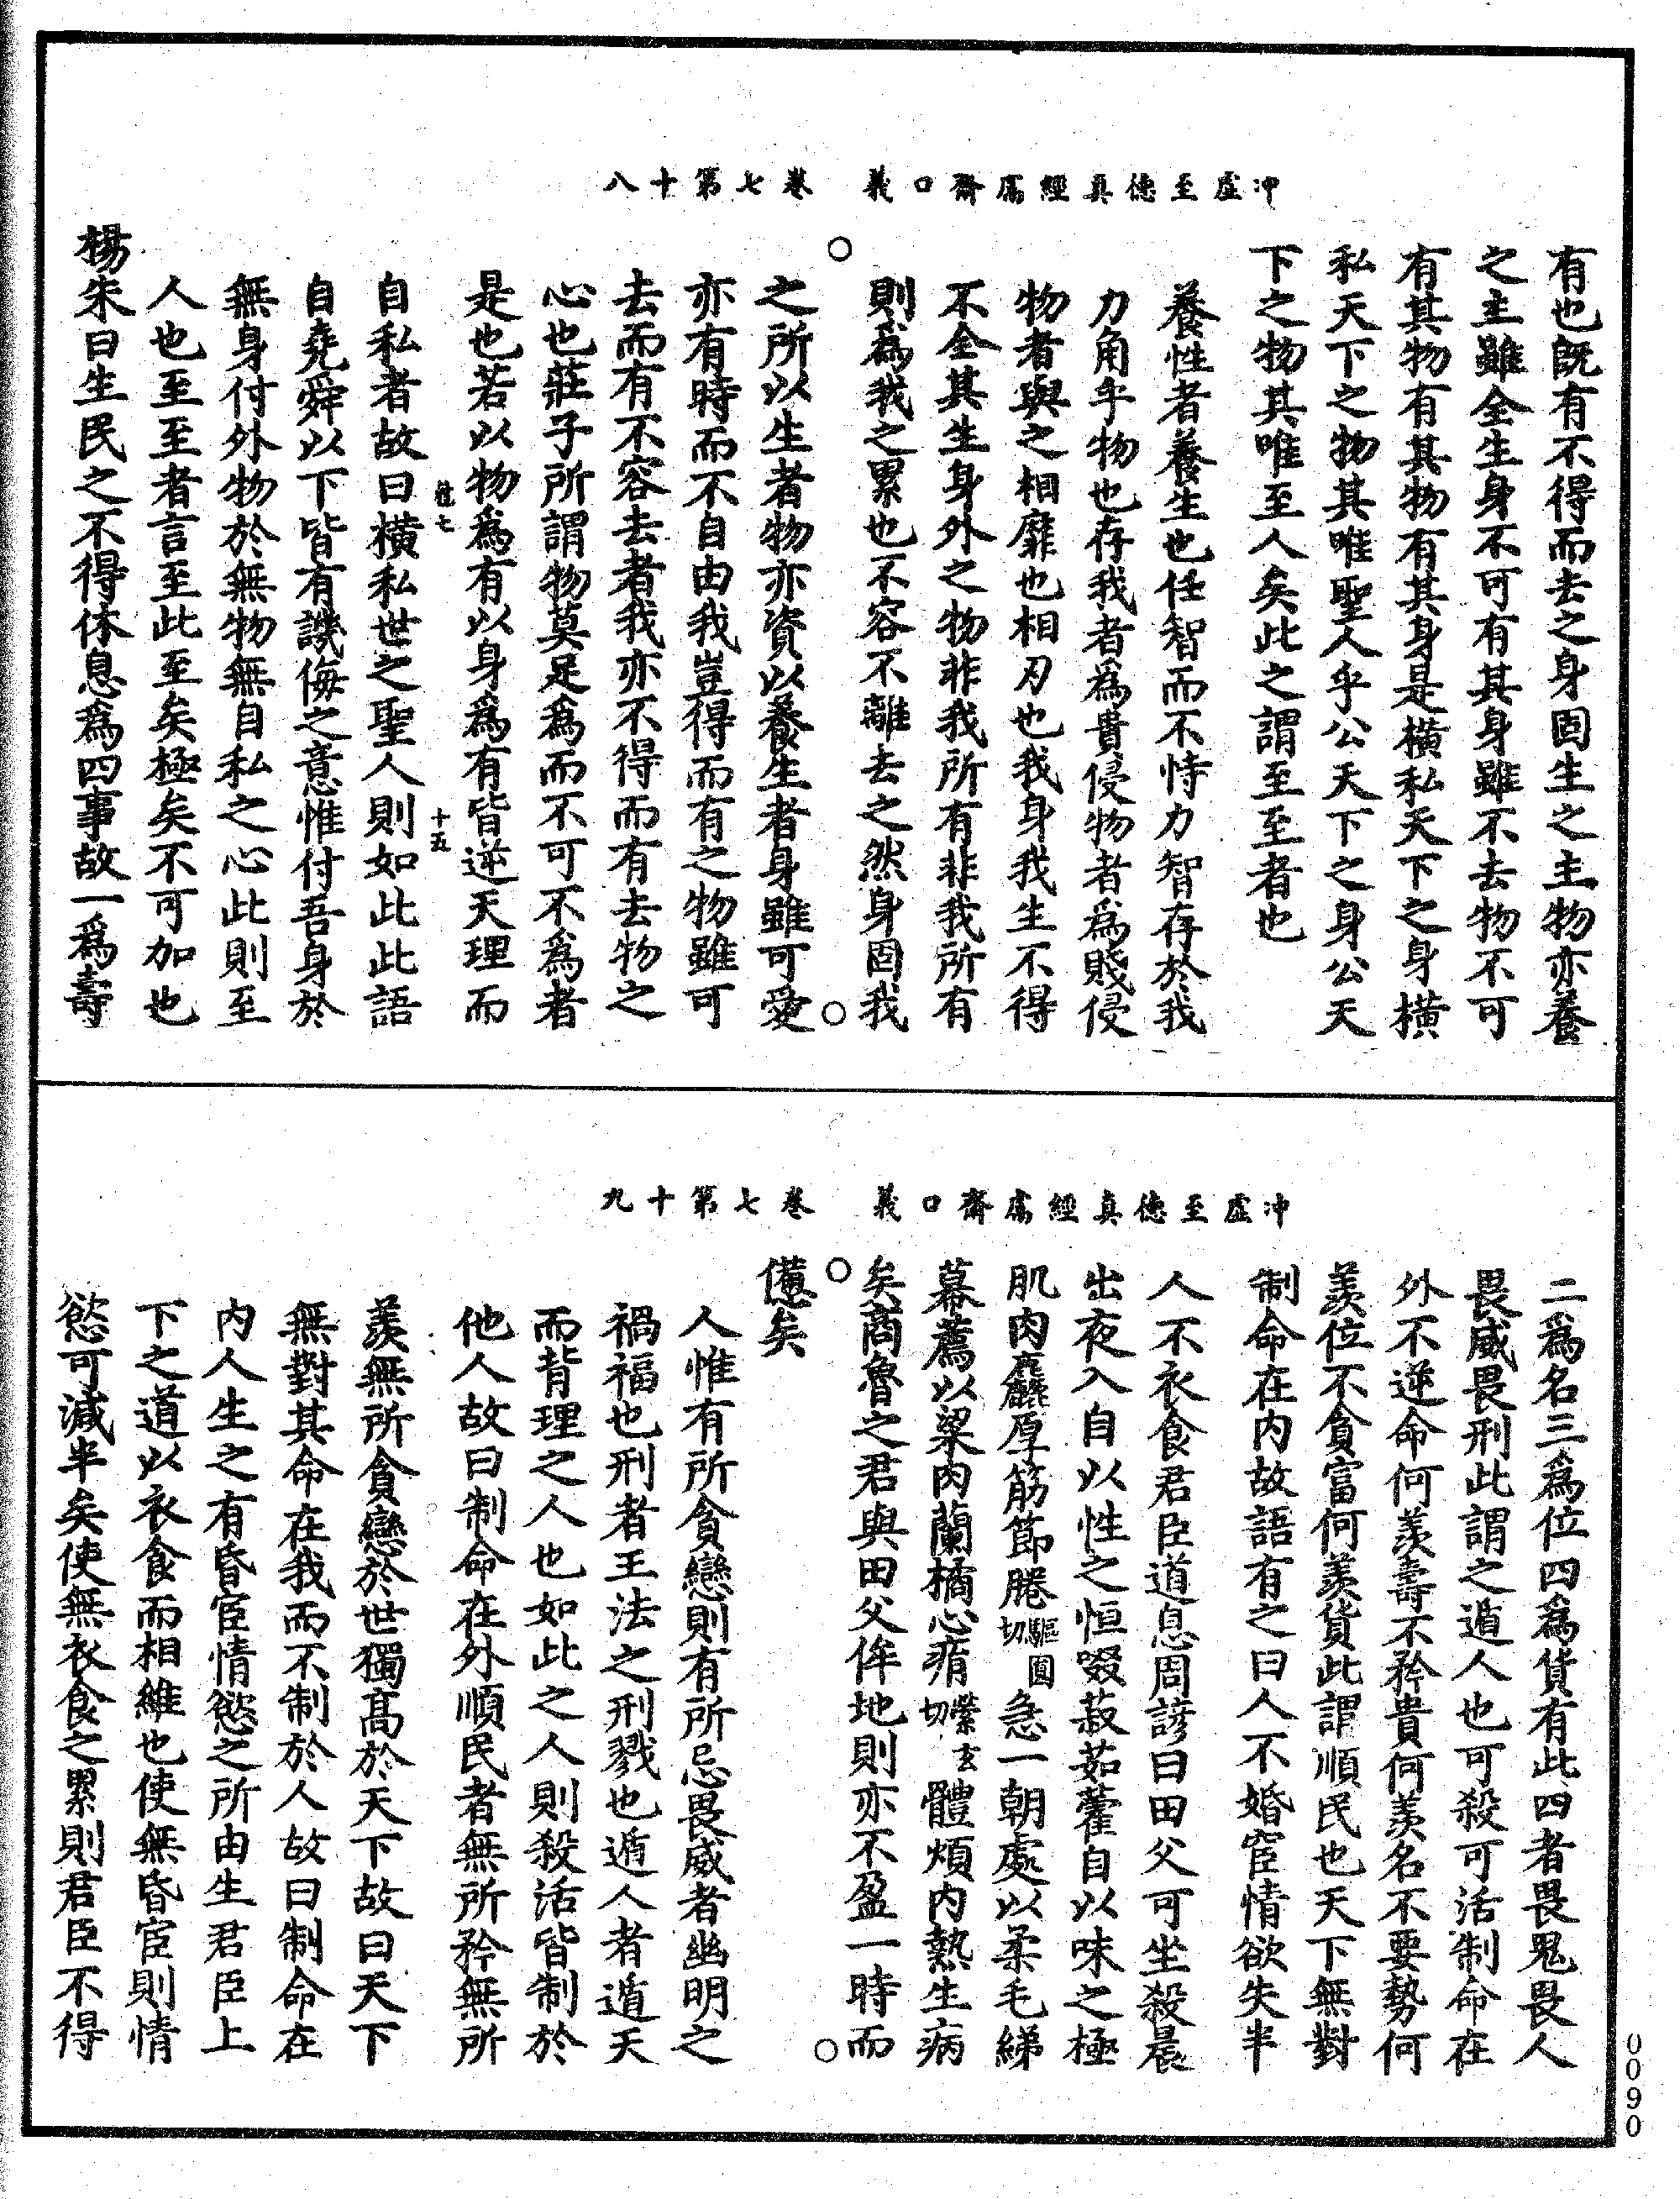 冲虛至德真經鬳齋口義　卷七第十八
有也旣有不得而去之身固生之主物亦養
之主雖全生身不可有其身雖不去物不可
有其物有其物有其身是橫私天下之身橫
私天下之物其唯聖人乎公天下之身公天
下之物其唯至人矣此之謂至至者也
養性者養生也任智而不恃力智存於我
力角乎物也存我者爲貴侵物者爲賤侵
物者與之相靡也相刃也我身我生不得
不全其生身外之物非我所有非我所有
則爲我之累也不容不離去之然身固我
之所以生者物亦資以養生者身雖可愛
亦有時而不自由我豈得而有之物雖可
去而有不容去者我亦不得而有去物之
心也莊子所謂物莫足爲而不可不爲者
是也若以物爲有以身爲有皆逆天理而
十五
自私者故曰橫私世之聖人則如此此語
自堯舜以下皆有譏侮之意惟付吾身於
無身付外物於無物無自私之心此則至
人也至至者言至此至矣極矣不可加也
楊朱曰生民之不得休息爲四事故一爲壽
冲虛至德真經鬳齋口義　卷七第十九
二爲名三爲位四爲貨有此四者畏鬼畏人
畏威畏刑此謂之遁人也可殺可活制命在
外不逆命何羨壽不矜貴何羨名不要勢何
羨位不貪富何羨貨此謂順民也天下無對
制命在内故語有之曰人不婚宦情欲失半
人不衣食君臣道息周諺曰田父可坐殺晨
出夜入自以性之恒啜菽茹藿自以味之極
肌肉麤厚筋節腃驅圓切急一朝處以柔毛綈
幕薦以粱肉蘭橘心痟縈玄切體煩内熱生病
矣商魯之君與田父侔地則亦不盈一時而
憊矣
人惟有所貪戀則有所忌畏威者幽明之
禍福也刑者王法之刑戮也遁人者遁天
而背理之人也如此之人則殺活皆制於
他人故曰制命在外順民者無所矜無所
羨無所貪戀於世獨高於天下故曰天下
無對其命在我而不制於人故曰制命在
内人生之有昏宦情慾之所由生君臣上
下之道以衣食而相維也使無昏宦則情
慾可減半矣使無衣食之累則君臣不得
0090